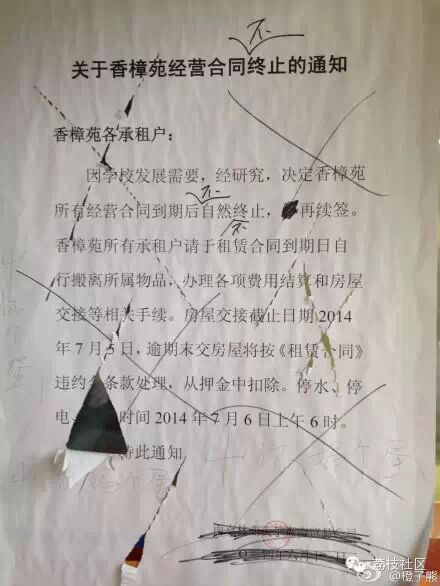 不
关于香樟苑经营合同终止的通知
香樟苑各承租户：
因学校发展需要，经研究，决定香樟苑
不
所有经营合同到期后自然终止，再续签。
不
香樟苑所有承租户请于租赁合同到期日自
行搬离所属物品，办理各项费用结算和房屋
交接等相关手续。房屋交接截止日期 2014
年 7 月 5 日，逾期未交房屋将按《租赁合同》
违约条款处理，从押金中扣除。停水、停
电时间 2014 年 7 月 6 日上午 6 时。
特此通知
荔枝社区
@橙子熊